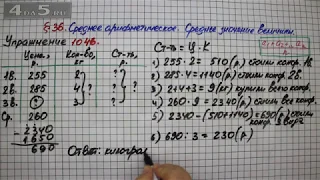 4апо5.com
§ 36. Среднее арифметическое. Среднее значение величины
Упражнение 1046.
Цена, р. Кол-во, кг Ст-ть, р.
1в. 255 2 ?
2в. 285 4 ? ?
3в. ? 3 ?
Ср. 260
2340
1650
690
Ст-ть = Ц · К
1) 255 · 2 = 510 (р.) стоили конф. 1в.
2) 285 · 4 = 1140 (р.) стоили конф. 2в.
3) 2+4+3 = 9 (кг) купили всего конф.
4) 260 · 9 = 2340 (р.) стоили все конф.
5) 2340 - (510+1140) = 690 (р.) стоили конф. 3 вида
6) 690 : 3 = 230 (р.)
Ответ: килограм